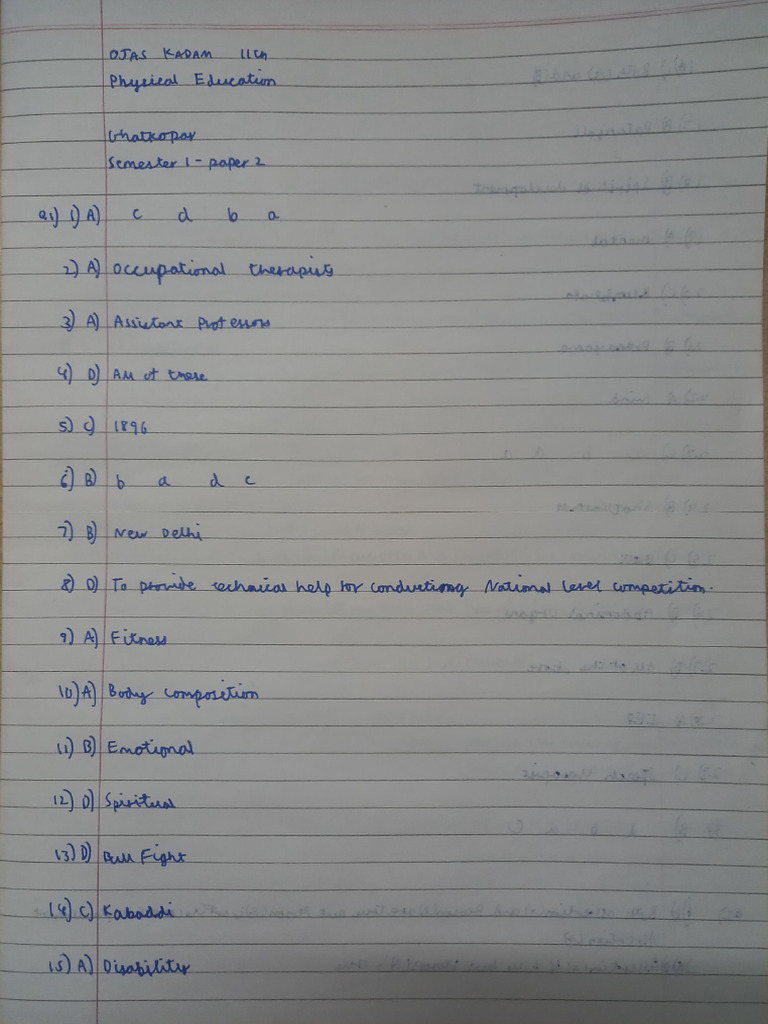 OJAS KADAM 11th
Physical Education
Ghatkopar
Semester 1 - paper 2
Q.1) 1) A) c d b a
2) A) Occupational therapists
3) A) Assistant Professors
4) D) All of these
5) C) 1896
6) B) b a d c
7) B) New Delhi
8) D) To provide technical help for conductiong National Level competition.
9) A) Fitness
10) A) Body composition
11) B) Emotional
12) D) Spiritual
13) D) Bull Fight
14) C) Kabaddi
15) A) Disability